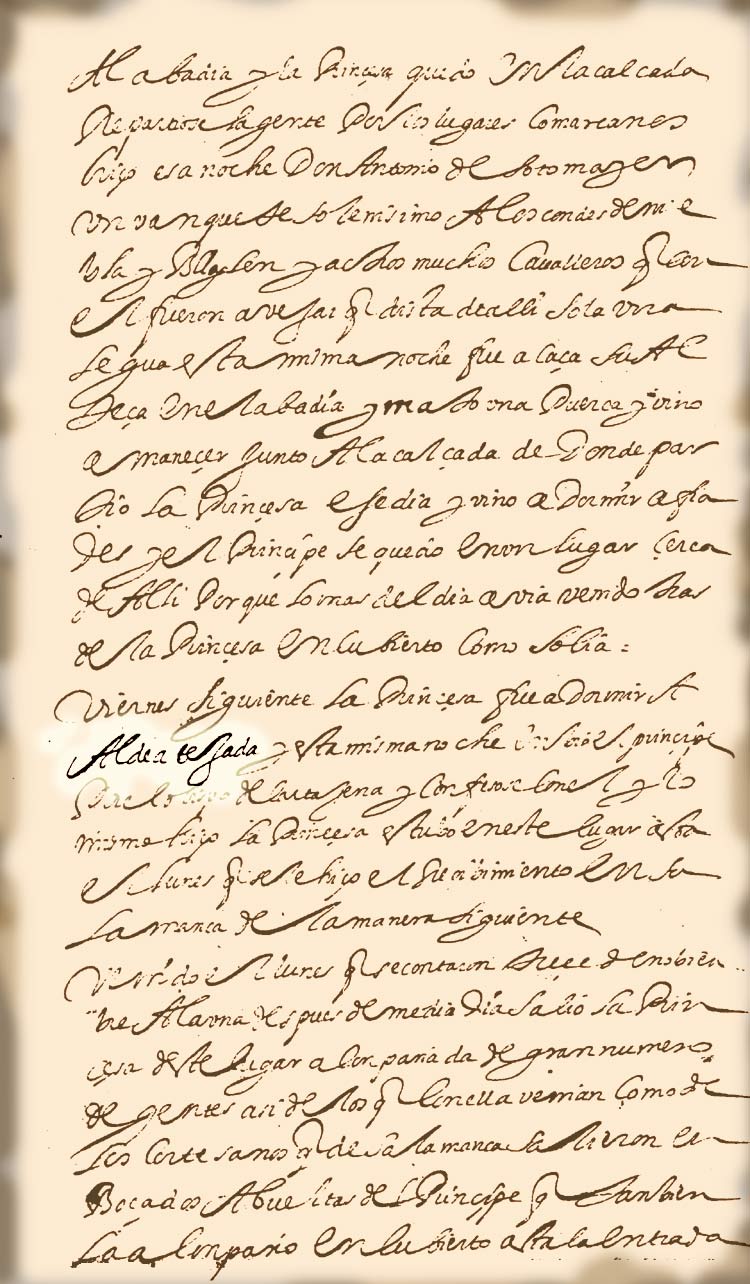 Al abadia y la Prinçesa quedo En la calçada
Repartiose la gente Por los lugares Comarcanos
hiço esa noche Don Antonio de sotomayor
Un vanquete solenisimo A los condes de nie
bla y y a otros muchos Cavalleros q̃ con
el fueron a vejar q̃ dista de alli sola una
legua esta misma noche fue a caça su Al
teça En el abadia y mato una Puerca y vino
a manecer Junto A la calçada de Donde par
tio La Prinçesa ese dia y vino a Dormir a fra
des y el Principe se quedo En un lugar çerca
de Alli Por que lo mas del dia avia venido tras
de la Prinçesa En cubierto como solia :
Viernes siguiente La Prinçesa fue a Dormir A
Aldea tejada y esta misma noche el principe
de Cartajena y Confesose Con el y lo
mismo hiço La Prinçesa estubo en este lugar asta
el lunes q̃ se le hiço el Recibimiento En Sa
Lamanca de la manera siguiente
Venido el lunes q̃ se contaron treçe de nobien
bre A la una despues de medio Dia salio la Prin
çesa deste lugar acompañada de gran numero
de gentes asi de los q̃ Con ella venian Como de
los Cortesanos q̃ de salamanca salieron en
Boçados A bueltas del Principe q̃ tanbien
La acompaño En cubierto asta la entrada